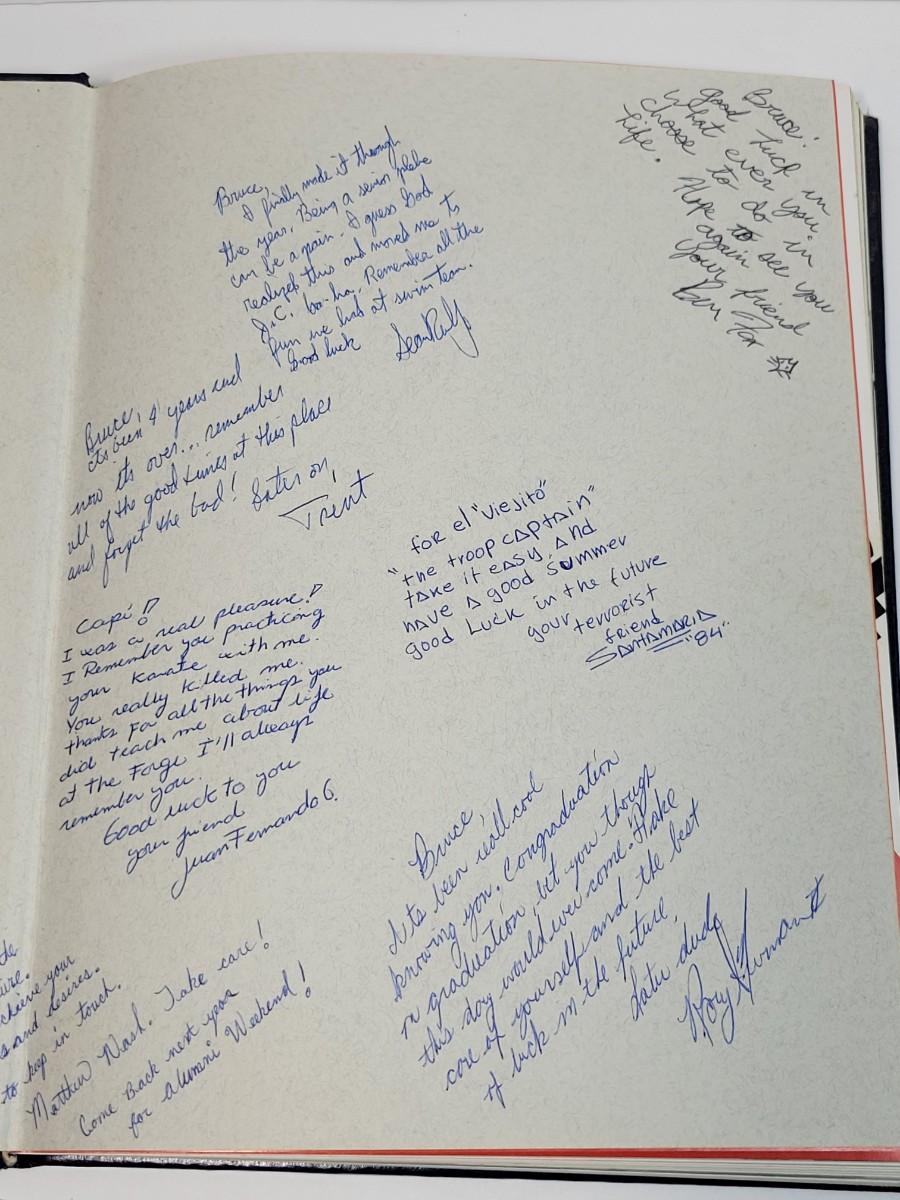 Bruce,
I finally made it through
the year. Being a senior plebe
can be a pain. I guess God
realized this and moved me to
J.C. ha-ha. Remember all the
fun we had at swim team.
Good luck
Sean
Bruce!
good luck in
what ever you
choose to do in
Life.
Hope to see you
again
Your friend
Ben
Bruce,
its been 4 years and
now its over... remember
all of the good times at this place
and forget the bad! Later on,
Trent
"for el "viejito"
"the troop captain"
take it easy, and
have a good summer
good luck in the future
your terrorist
friend
SANTAMARIA
"84"
Capi!!
I was a real pleasure!!
I Remember you practicing
your Karate with me.
You really killed me.
thanks for all the things you
did teach me about life
at the Forge I'll always
remember you.
Good luck to you
your friend
Juan Fernando G.
Bruce,
Its been reall cool
knowing you. Congraduation
on graduation, bet you though
this day would ever come. Take
care of yourself and the best
of luck in the future.
Later dude
Rory
the
ure.
chieve your
s and desires.
to keep in touch.
Matthew Nash. Take care!
Come Back next year
for alumni Weekend!